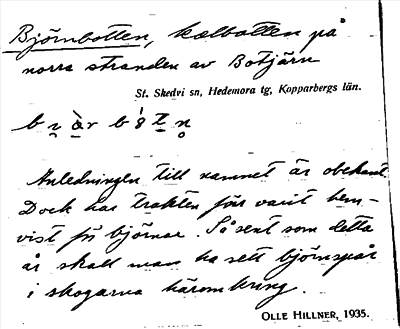 Björnbotten, kolbotten på
norra stranden av Botjärn
St. Skedvi sn, Hedemora tg, Kopparbergs län.
Anledningen till namnet är obekant
Dock har trakten förr varit hem-
vist för björnar. Så sent som detta
år skall man ha sett björnspår
i skogarna häromkring.
OLLE HILLNER, 1935.